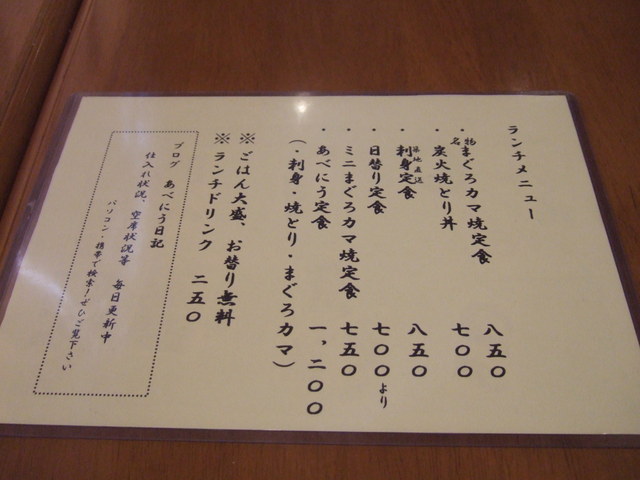 ランチメニュー
・名物 まぐろカマ焼定食 八五〇
・炭火焼とり丼 七〇〇
・築地直送 刺身定食 八五〇
・日替り定食 七〇〇より
・ミニまぐろカマ焼定食 七五〇
・あべにう定食 一、二〇〇
（・刺身・焼とり・まぐろカマ）
※ごはん大盛、お替り無料
※ランチドリンク 二五〇
ブログ あべにう日記
仕入れ状況、空席状況等 毎日更新中
パソコン・携帯で検索！ぜひご覧下さい